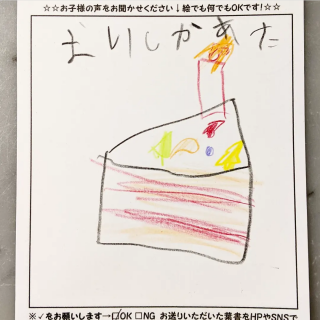 ☆☆お子様の声をお聞かせください↓絵でも何でもOKです!☆☆
おいしかあた
※✓をお願いします→☑OK □NG お送りいただいた葉書をHPやSNSで